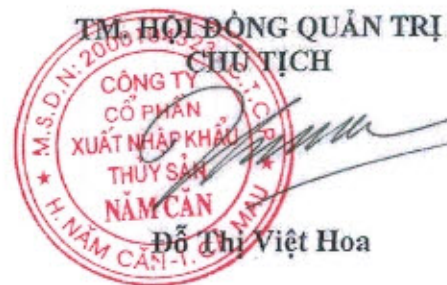 TM. HỘI ĐỒNG QUẢN TRỊ
CHỦ TỊCH
CÔNG TY
CỔ PHẦN
XUẤT NHẬP KHẨU
THỦY SẢN
NĂM CĂN
H. NĂM CĂN - T. CÀ MAU
Đỗ Thị Việt Hoa